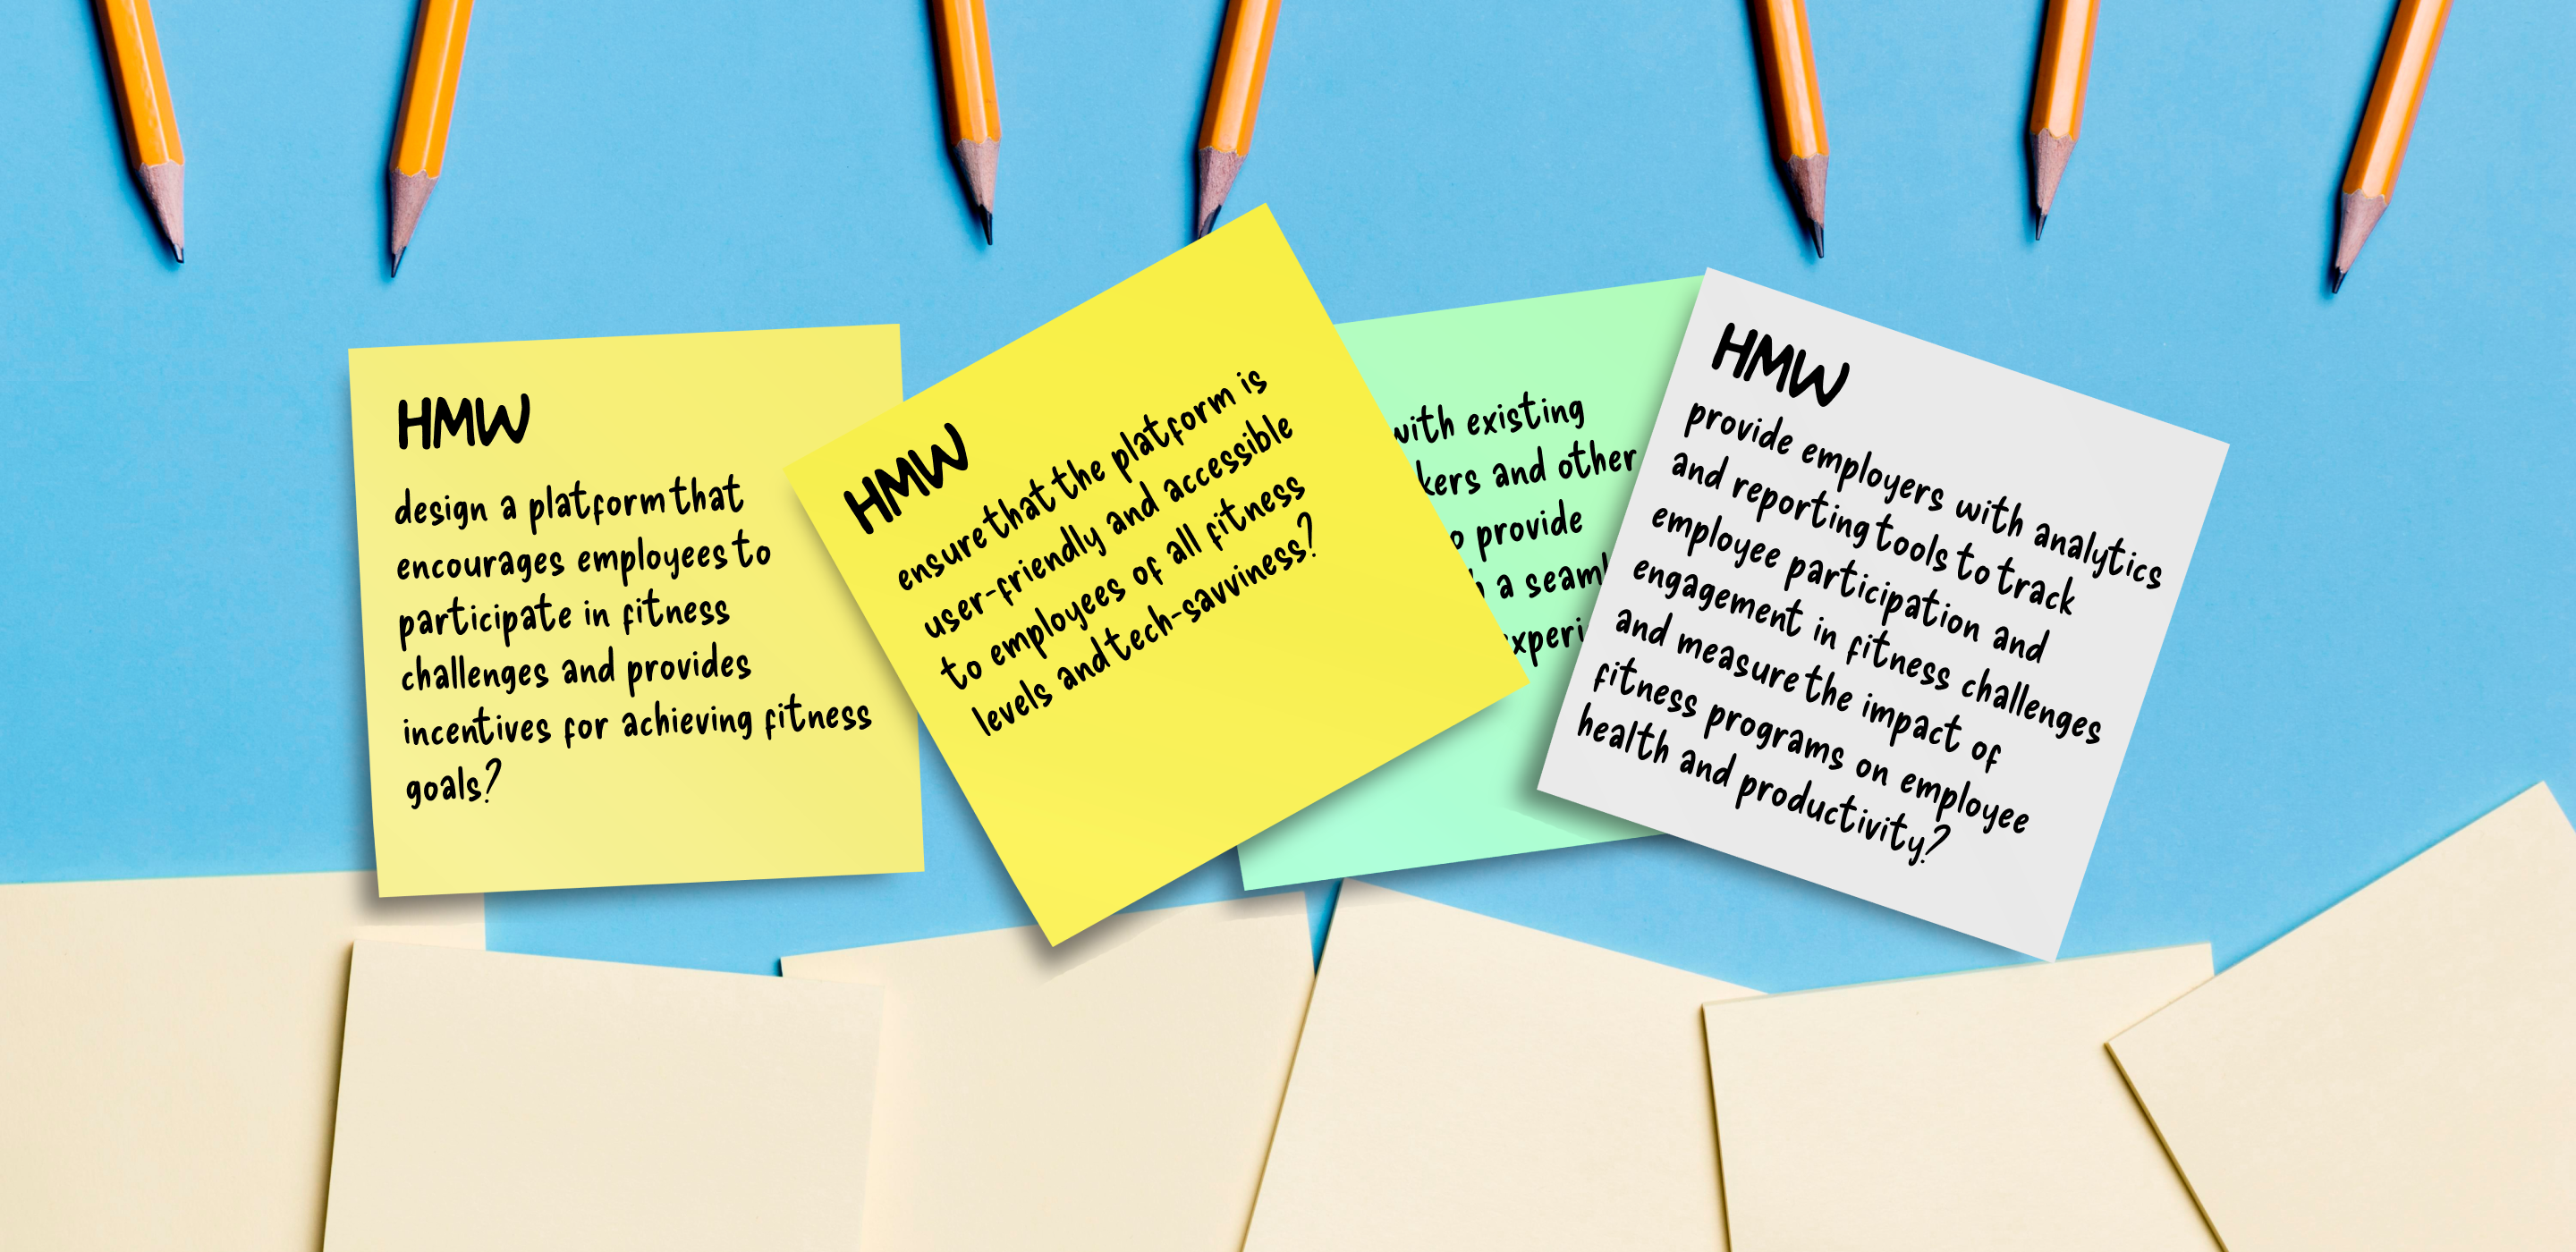 HMW
design a platform that
encourages employees to
participate in fitness
challenges and provides
incentives for achieving fitness
goals?
HMW
ensure that the platform is
user-friendly and accessible
to employees of all fitness
levels and tech-savviness?
with existing
and other
provide
a
HMW
provide employers with analytics
and reporting tools to track
employee participation and
engagement in fitness challenges
and measure the impact of
fitness programs on employee
health and productivity?